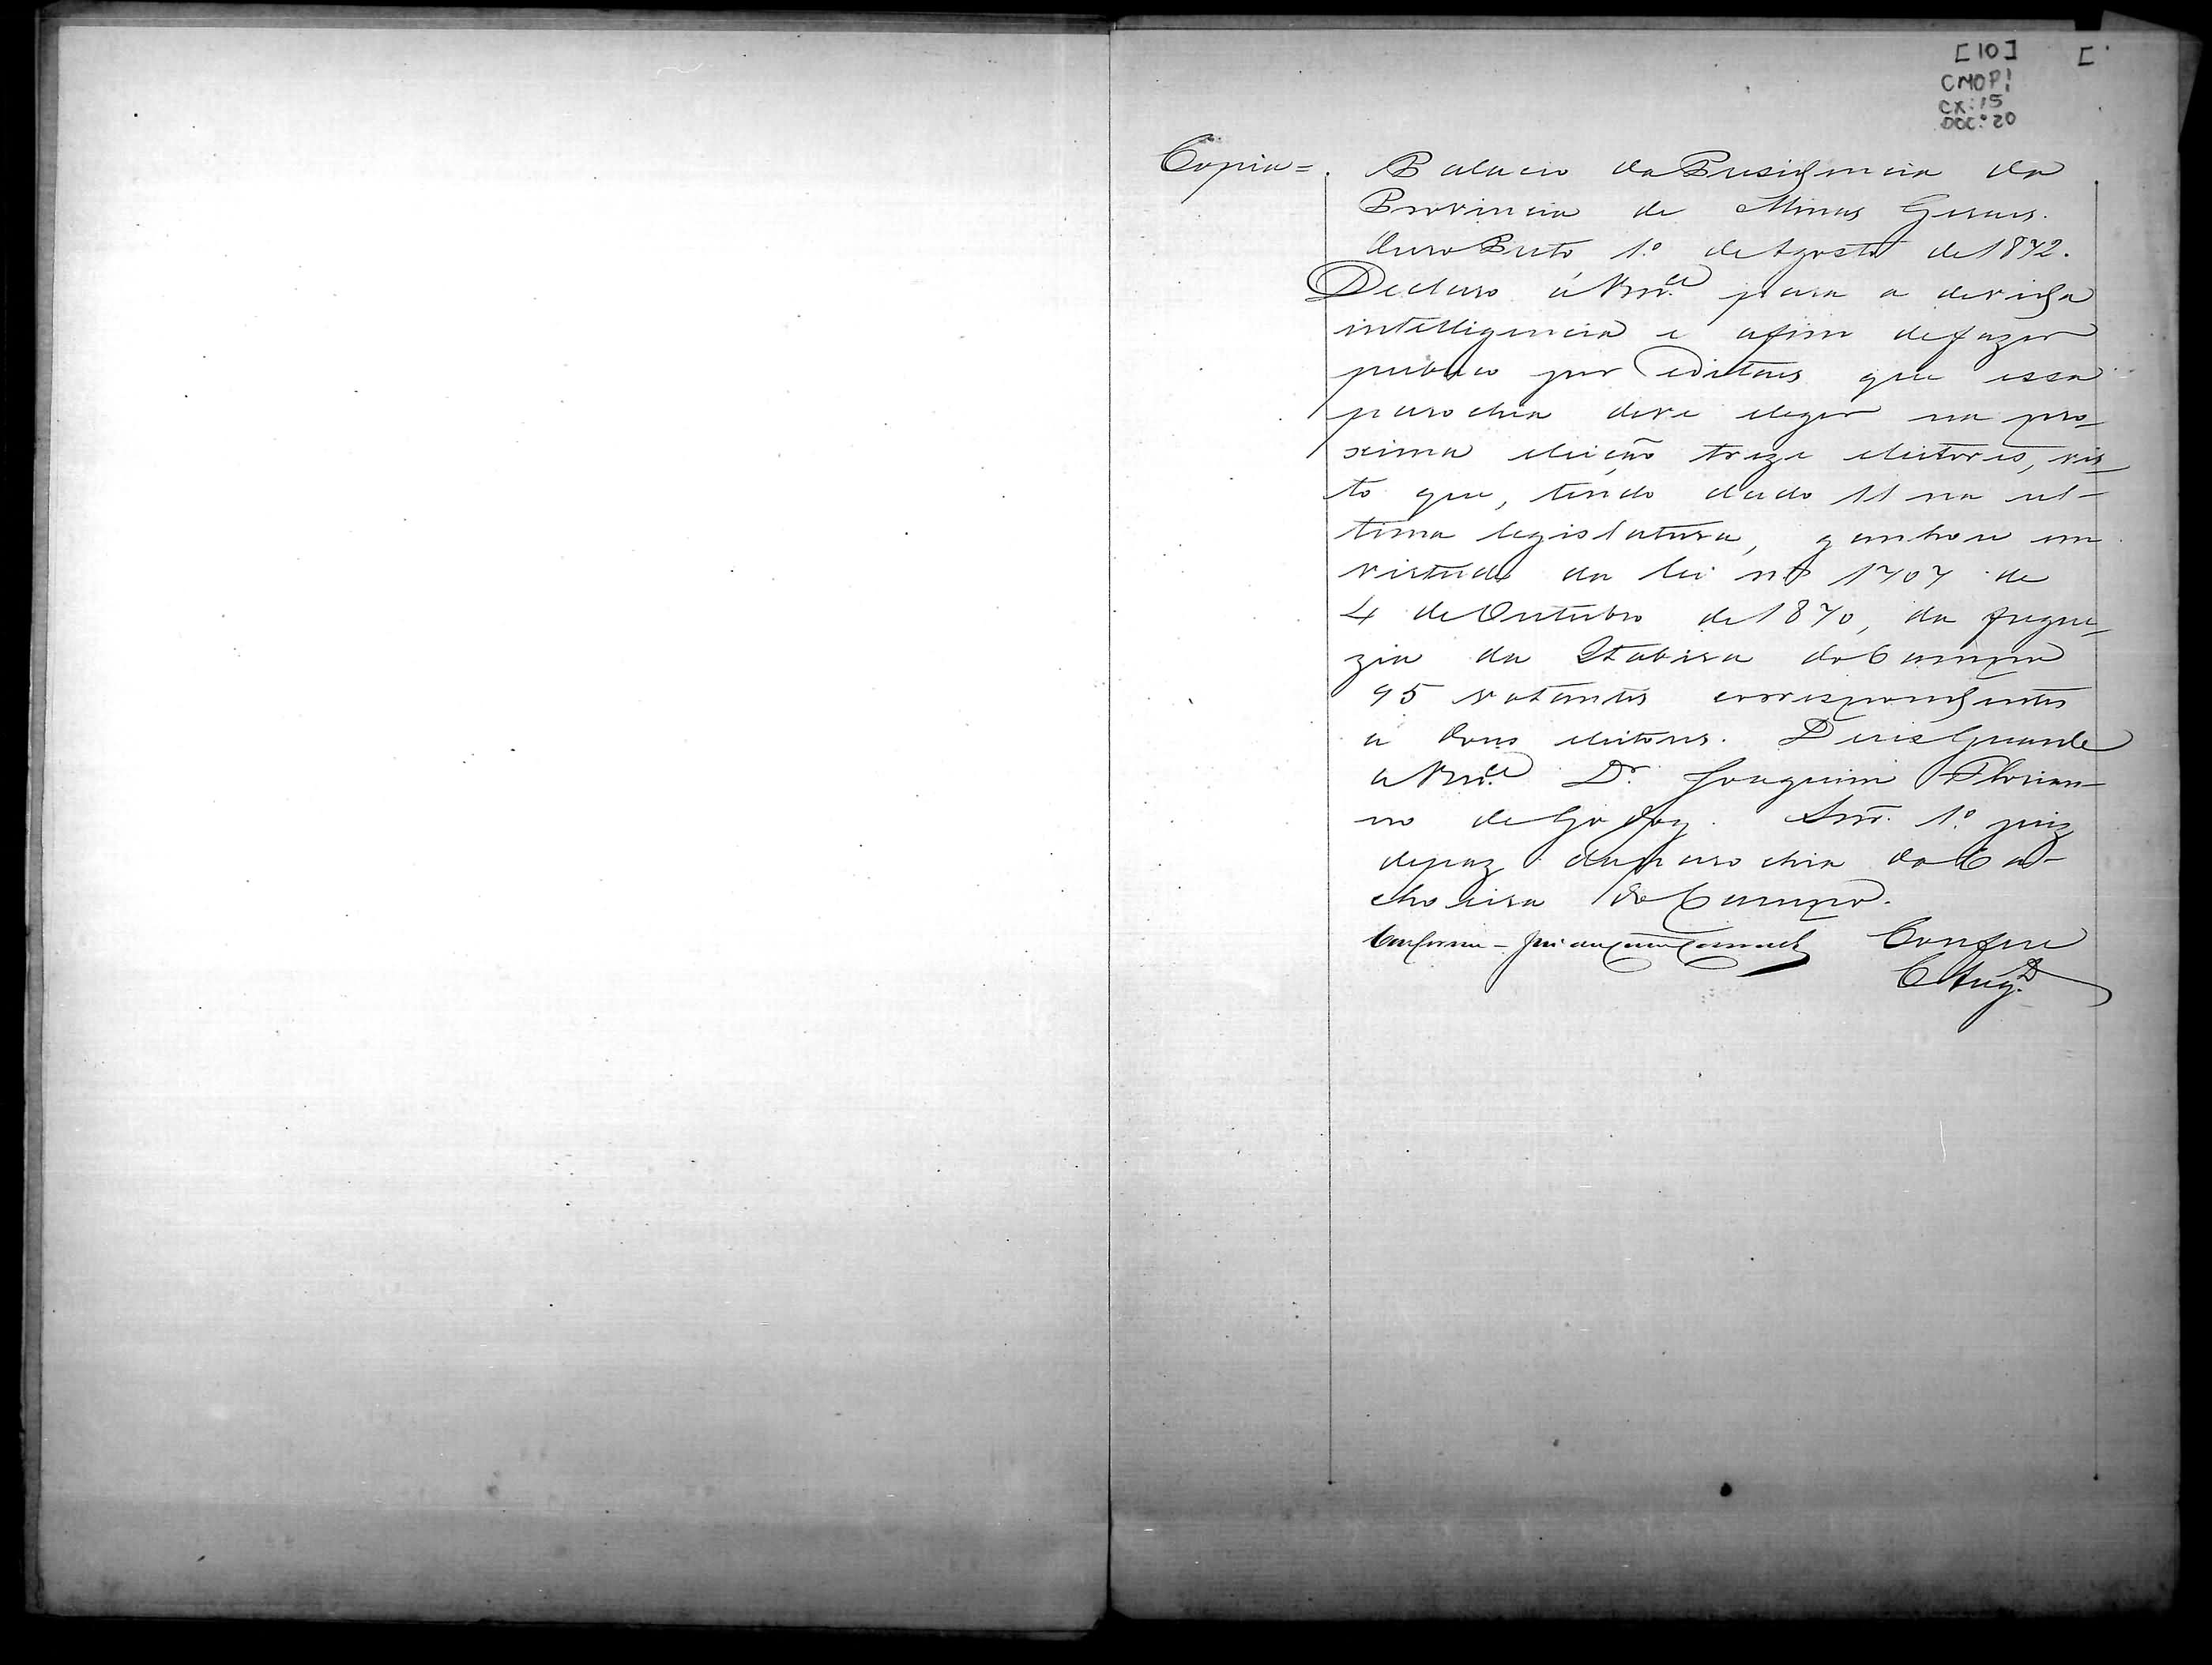 [10] [
CMOP!
CX: 15
DOC: 20
Copia = Palacio da Presidencia da
Provincia de Minas Geraes.
Ouro Preto 1.º de Agosto de 1872.
Declaro á Vm.ce para a devida
intelligencia e afim de fazer
publico por editaes que essa
parochia deve eleger na pro-
xima eleição treze eleitores, vis-
to que, tendo dado 11 na ul-
tima legislatura, ganhou em
virtude da lei nº 1707 de
4 de Outubro de 1870, da fregue-
zia da Itabira do Campo
95 votantes correspondentes
a dous eleitores. Deus Guarde
a Vm.ce Dr. Joaquim Florian-
no de Godoy. Snr. 1.º juiz
de paz da parochia da Ca-
choeira do Campo.
Conforme - Confere
C Aug.